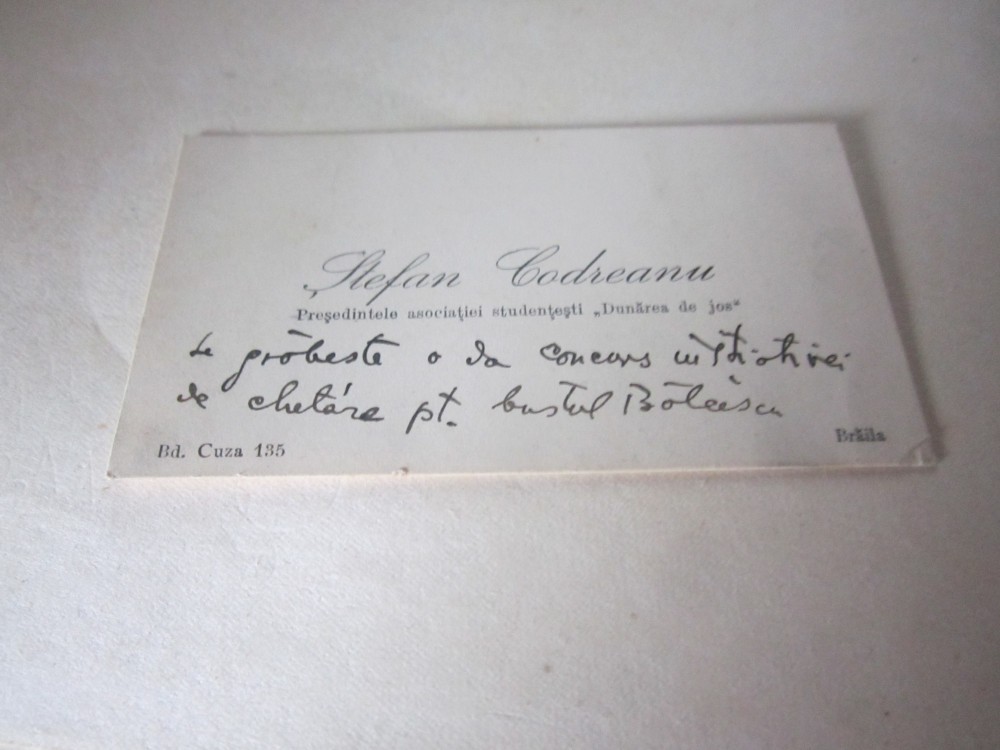 Ștefan Codreanu
Președintele asociației studențești „Dunărea de jos“
se grăbește a da concurs inițiativei
de chetare pt. bustul Bălcescu
Bd. Cuza 135
Brăila